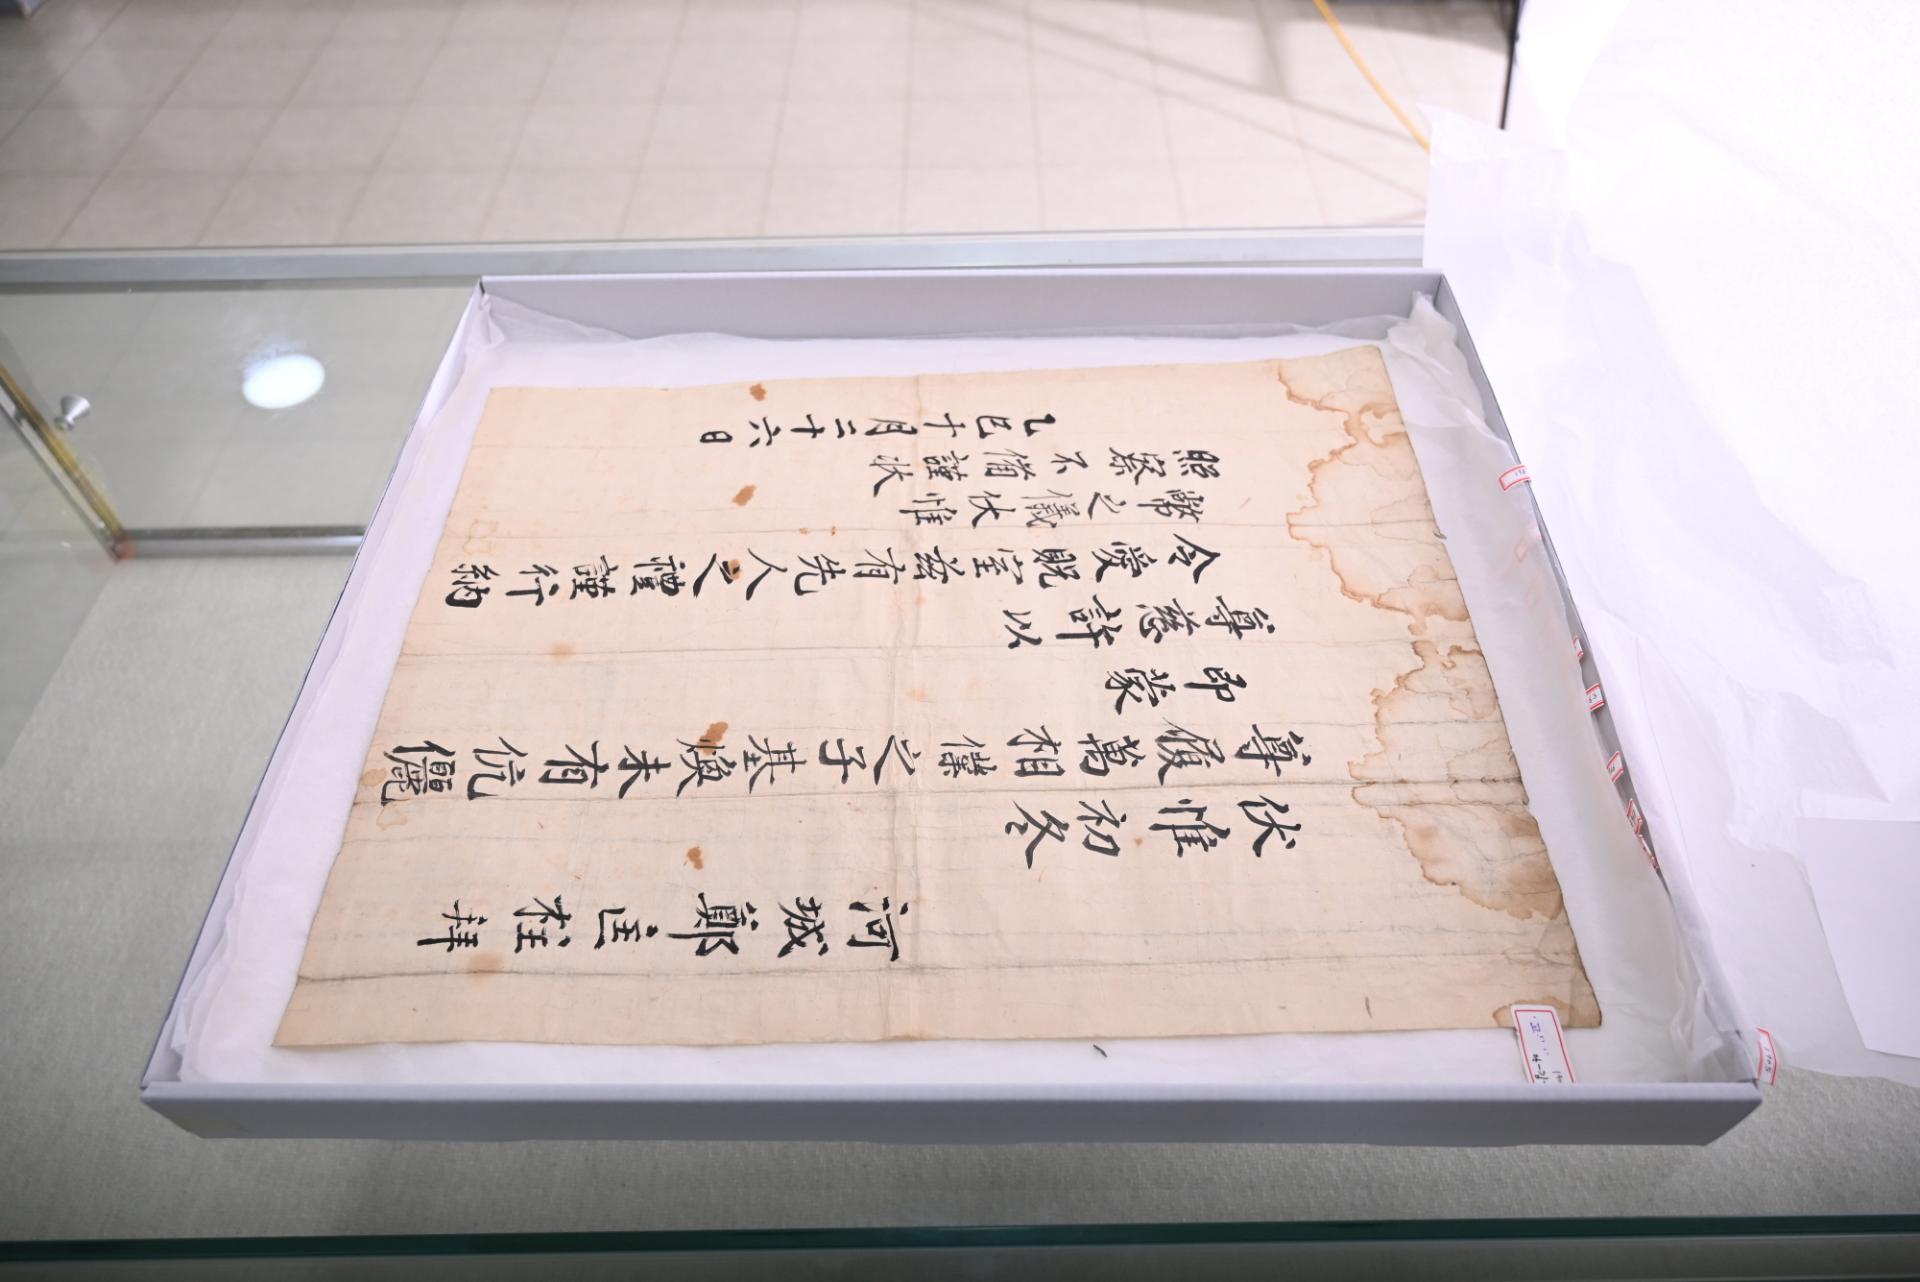 河城鄭匡柱拜
伏惟初冬
尊履萬相僕之子基煥未有伉儷
即蒙
尊慈許以
令愛貺室茲有先人之禮謹行納
幣之儀伏惟
照察不備謹狀
乙巳十月二十六日